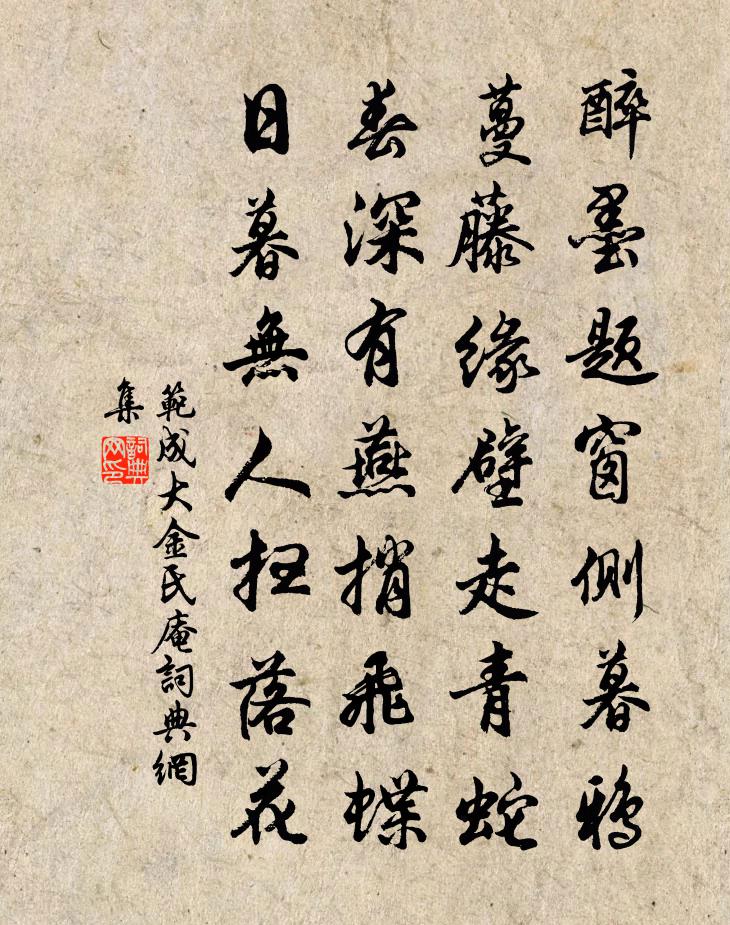 醉墨題窗側暮鴉
蔓藤緣壁走青蛇
春深有燕捎飛蝶
日暮無人掃落花
範成大金氏庵詞典網
集
詞典
网印